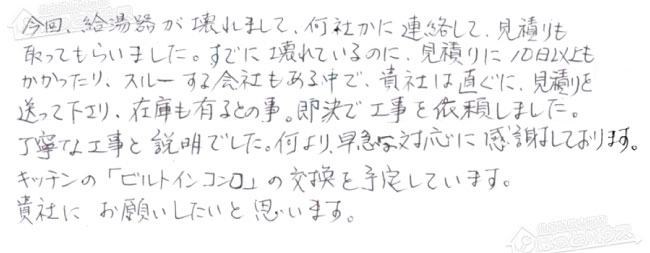 今回、給湯器が壊れまして、何社かに連絡して、見積りも
取ってもらいました。すでに壊れているのに、見積りに10日以上も
かかったり、スルーする会社もある中で、貴社は直ぐに、見積りを
送って下さり、在庫も有るとの事。即決で工事を依頼しました。
丁寧な工事と説明でした。何より、早急な対応に感謝しております。
キッチンの「ビルトインコンロ」の交換を予定しています。
貴社にお願いしたいと思います。